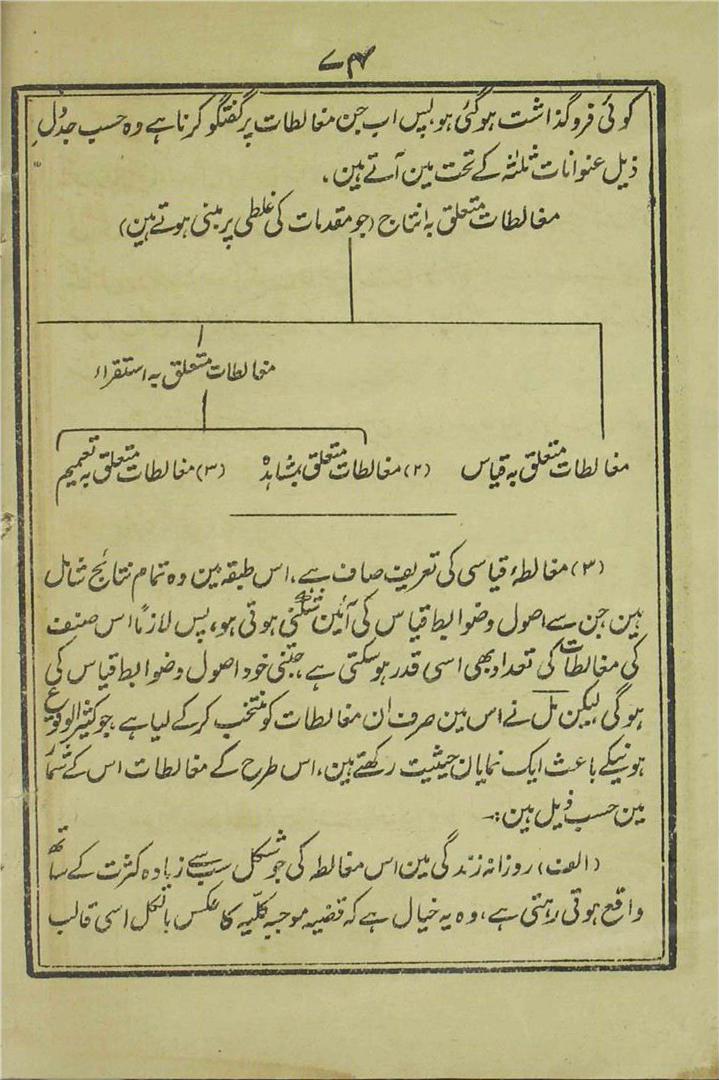 ۷۴
کوئی فروگذاشت ہوگئی ہو، پس اب جن مغالطات پر گفتگو کرنا ہے وہ حسب جدولِ
ذیل عنوانات ثلثہ کے تحت مین آتے ہین۔
مغالطات متعلق بہ انتاج (جو مقدمات کی غلطی پر مبنی ہوتے ہین)
مغالطات متعلق بہ استقراء
مغالطات متعلق بہ قیاس (۲) مغالطات متعلق بمشاہدہ (۳) مغالطات متعلق بہ تعمیم
(۳) مغالطۂ قیاسی کی تعریف صاف ہے، اس طبقہ مین وہ تمام نتائج شامل
ہین جن سے اصول وضوابط قیاس کی آئین شکنی ہوتی ہو، پس لازمًا اس صنف
کی مغالطات کی تعداد بھی اسی قدر ہوسکتی ہے، جتنی خود اصول وضوابط قیاس کی
ہوگی لیکن مل نے اس مین صرف ان مغالطات کو منتخب کرکے لیا ہے، جو کثیر الوقوع
ہونیکے باعث ایک نمایان حیثیت رکھتے ہین، اس طرح کے مغالطات اس کے شمار
مین حسب ذیل ہین:۔
(الف) روزانہ زندگی مین اس مغالطہ کی جو شکل سب سے زیادہ کثرت کے ساتھ
واقع ہوتی رہتی ہے، وہ یہ خیال ہے کہ قضیہ موجبہ کلّیہ کا عکس بالکل اسی قالب